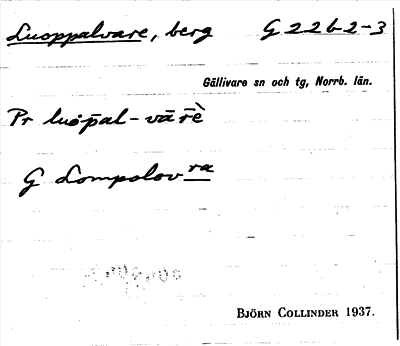 Luoppalvare, berg G 22 b 2-3
Gällivare sn och tg, Norrb. län.
Pr luȯp̄al-vār̄ὲ
G Lompolovra
BJÖRN COLLINDER 1937.